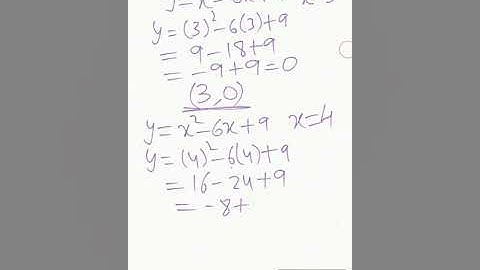 y = x²-6x+9 x=3
y = (3)²-6(3)+9
= 9-18+9
= -9+9=0
(3,0)
y = x²-6x+9 x=4
y = (4)²-6(4)+9
= 16-24+9
= -8+